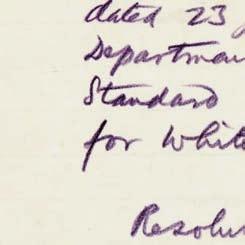 dated 23
Departmen
Standard
for White
Resolu